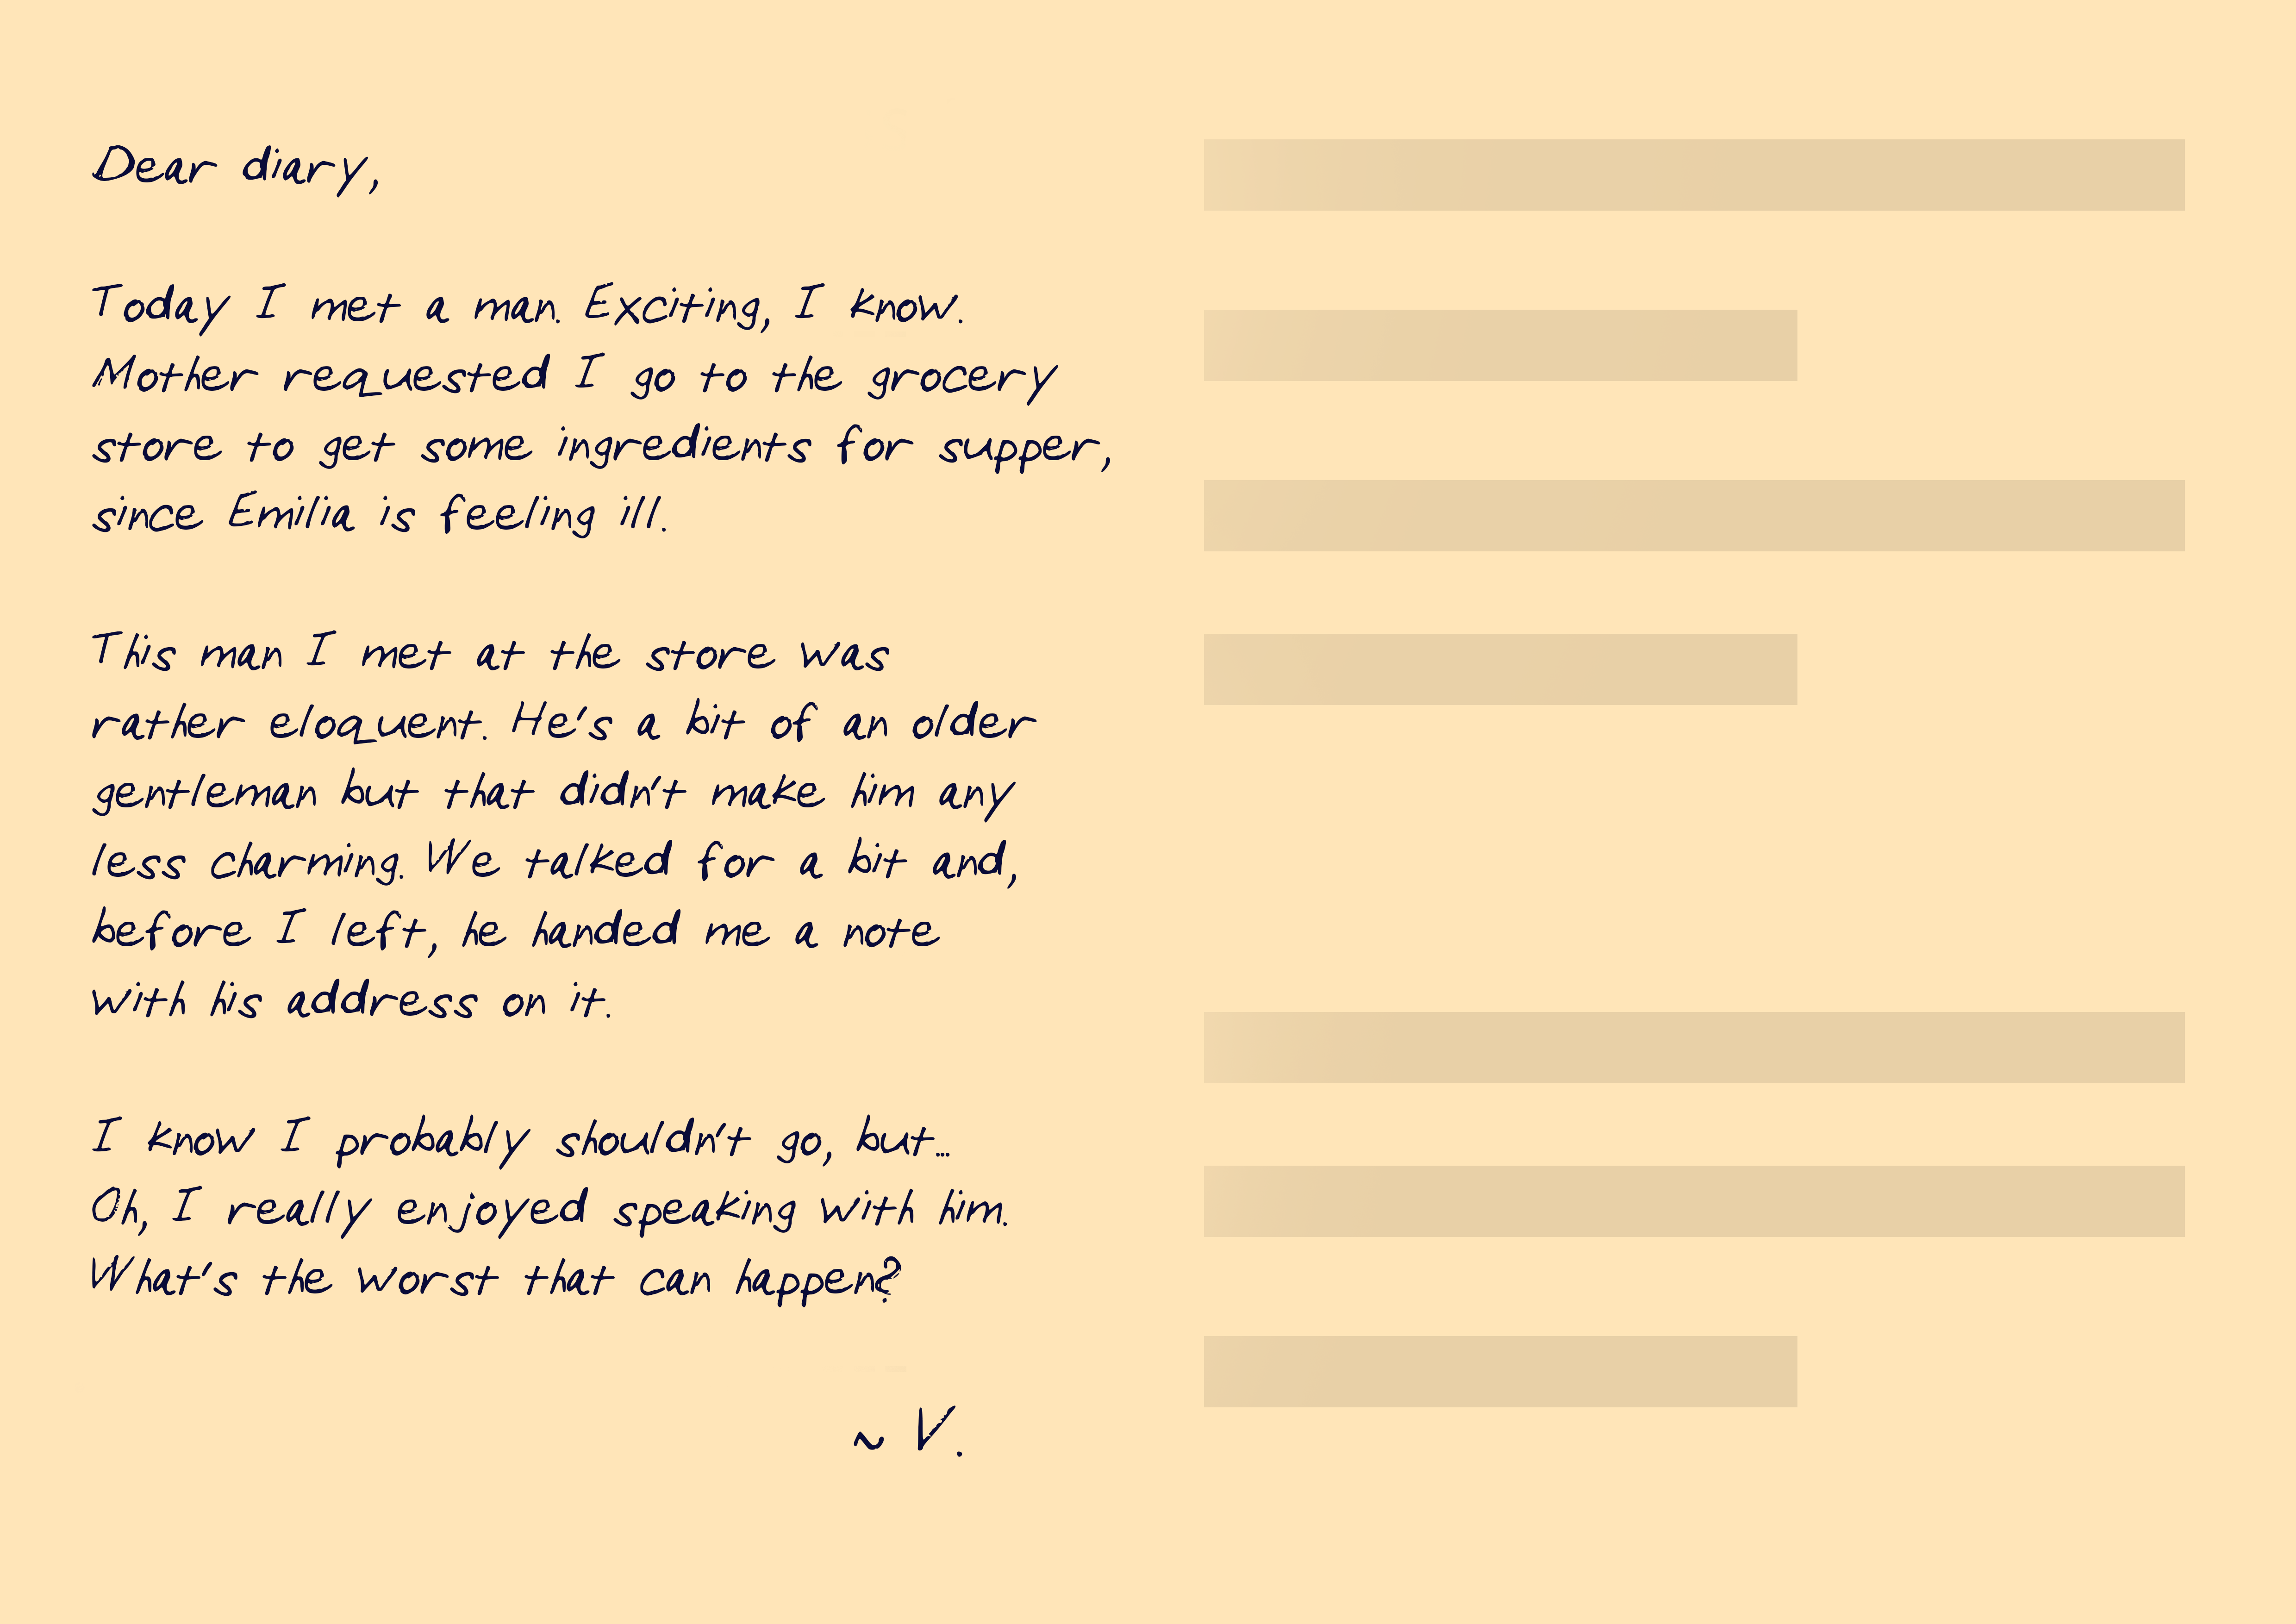 Dear diary,
Today I met a man. Exciting, I know.
Mother requested I go to the grocery
store to get some ingredients for supper,
since Emilia is feeling ill.
This man I met at the store was
rather eloquent. He's a bit of an older
gentleman but that didn't make him any
less charming. We talked for a bit and,
before I left, he handed me a note
with his address on it.
I know I probably shouldn't go, but...
Oh, I really enjoyed speaking with him.
What's the worst that can happen?
~ V.